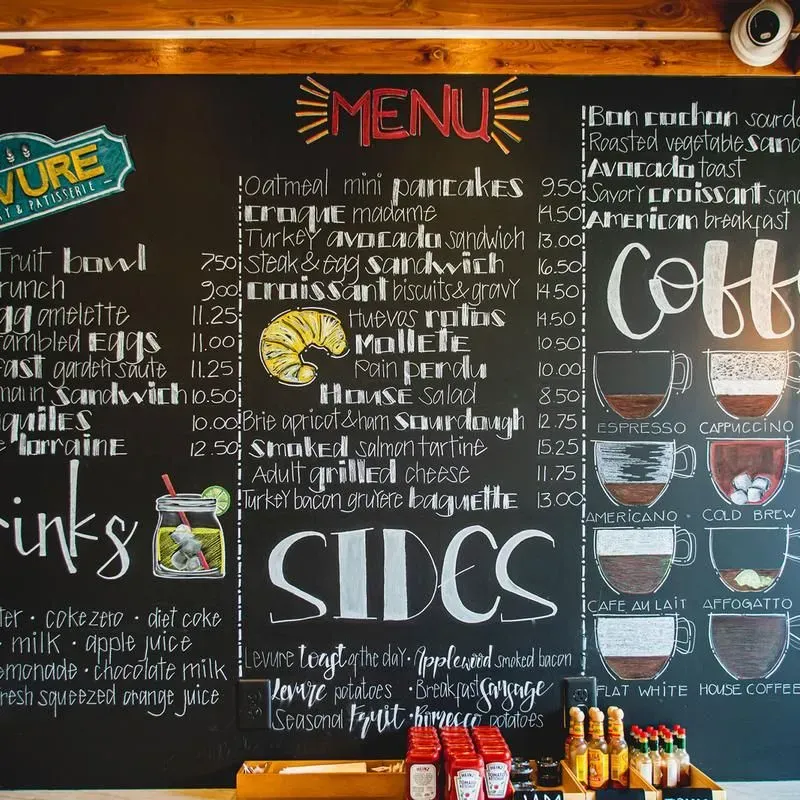 VURE
Y & PATISSERIE
Fruit bowl 7.50
runch 9.00
gg omelette 11.25
ambled EGGS 11.00
fast garden saute 11.25
main sandwich 10.50
quiles 10.00
lorraine 12.50
inks
cokezero · diet coke
· milk · apple juice
emonade · chocolate milk
resh squeezed orange juice
MENU
Oatmeal mini pancakes 9.50
croque madame 14.50
Turkey avocado sandwich 13.00
steak & egg sandwich 16.50
croissant biscuits & gravy 14.50
Huevos rotos 14.50
Mollete 10.50
Pain perdu 10.00
House salad 8.50
Brie apricot & ham sourdough 12.75
smoked salmon tartine 15.25
Adult grilled cheese 11.75
Turkey bacon gruyere baguette 13.00
SIDES
Levure toast of the day · Applewood smoked bacon
Levure potatoes · Breakfast sausage
Seasonal Fruit · Romesco potatoes
Bon cochon sourdo
Roasted vegetable sand
Avocado toast
Savory croissant san
American breakfast
Coff
ESPRESSO CAPPUCCINO
AMERICANO · COLD BREW
CAFE AU LAIT AFFOGATTO
FLAT WHITE HOUSE COFFEE
HEINZ
TOMATO
KETCHUP
JAM